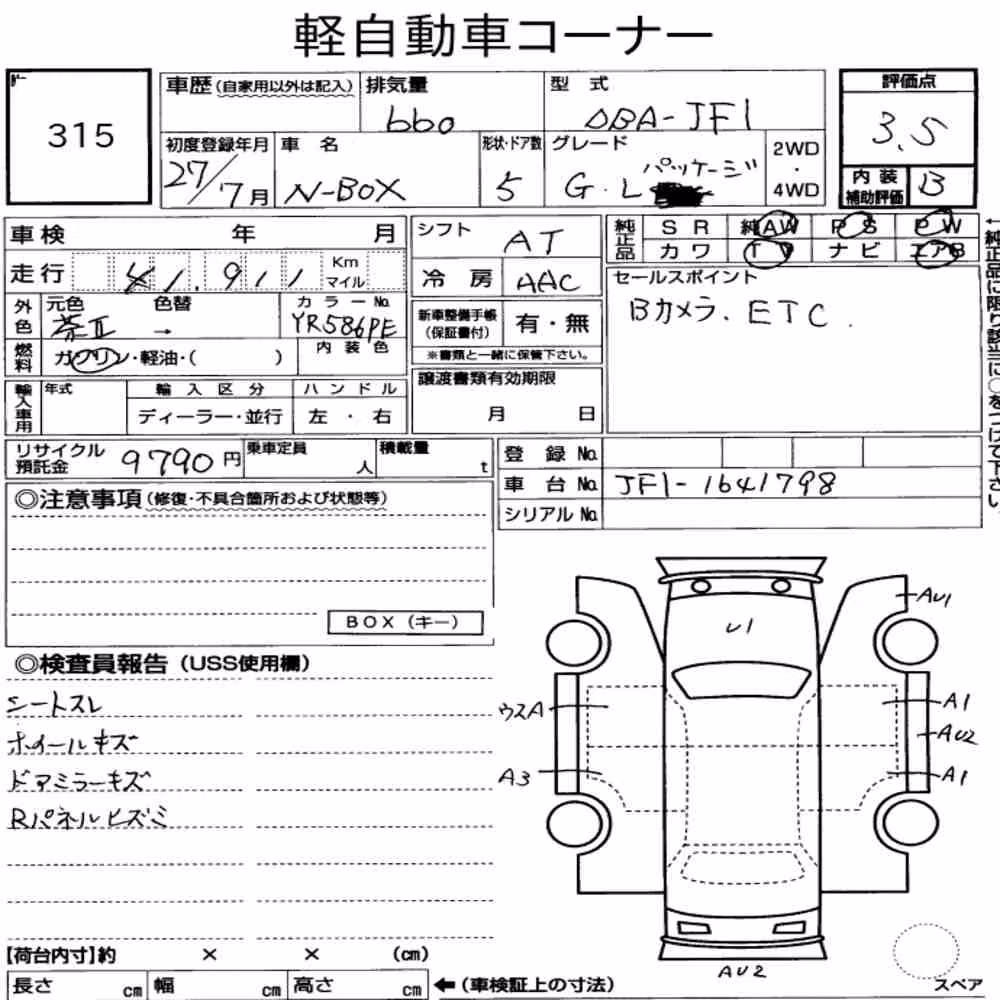 軽自動車コーナー
315
車歴(自家用以外は記入) 排気量 型式 評価点
660 DBA-JF1 3.5
初度登録年月 車名 形状・ドア数 グレード 2WD・4WD 内装補助評価 B
27/7月 N-BOX 5 G・L パッケージ
車検 年 月 シフト AT 純正品 SR 純AW PS PW
走行 41,911 Km マイル 冷房 AAC カワ TV ナビ エアB
外色 元色 色替 カラーNo. セールスポイント
茶Ⅱ → YR586PE Bカメラ、ETC.
新車整備手帳(保証書付) 有・無
※書類と一緒に保管下さい。
燃料 ガソリン・軽油・( ) 内装色
輸入車用 年式 輸入区分 ハンドル 譲渡書類有効期限
ディーラー・並行 左・右 月 日
←純正品に限り該当に○をつけて下さい。
リサイクル預託金 9790円 乗車定員 人 積載量 t 登録No.
車台No. JF1-1641798
シリアルNo.
◎注意事項(修復・不具合箇所および状態等)
BOX(キー)
◎検査員報告(USS使用欄)
シートスレ
ホイールキズ
ドアミラーキズ
Rパネルヒズミ
AU1
U1
ウスA A1
AU2
A3 A1
AU2
スペア
【荷台内寸】約 × × (cm)
長さ cm 幅 cm 高さ cm ←(車検証上の寸法)